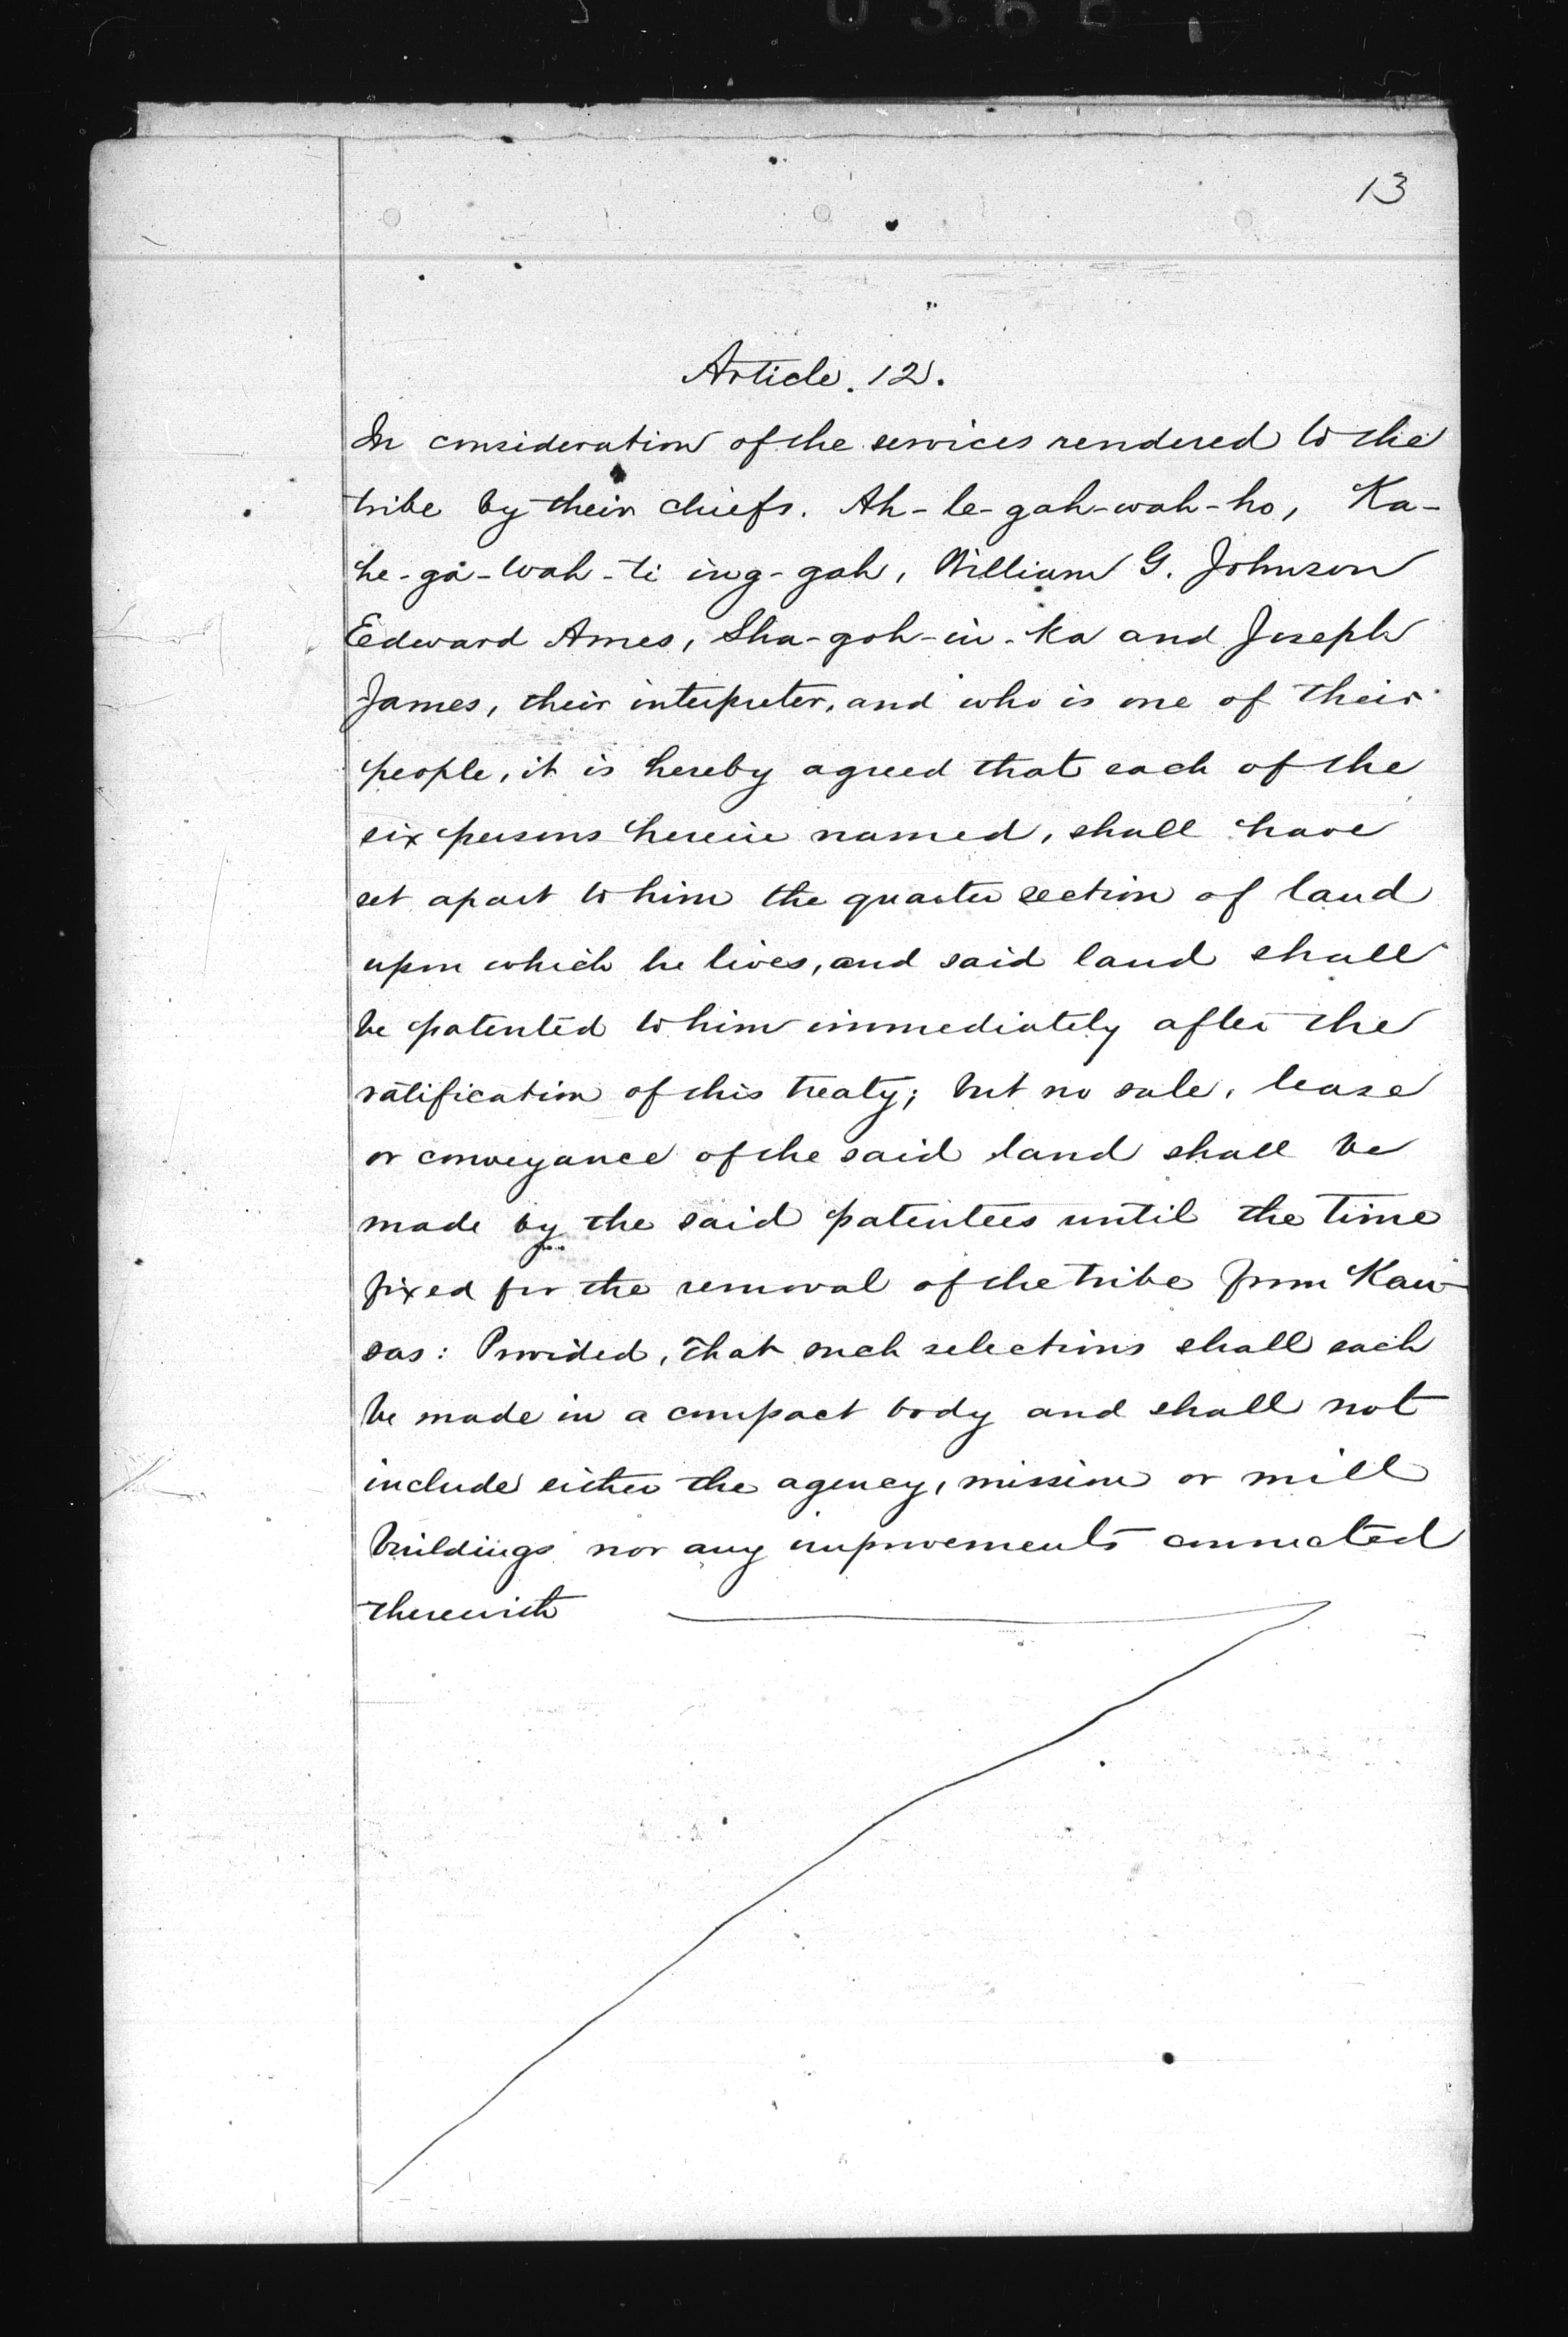 13
Article. 12.
In consideration of the services rendered to the
tribe by their chiefs. Ah-le-gah-wah-ho, Ka-
he-ga-wah-ti ing-gah, William G. Johnson
Eedward Ames, Sha-goh-in-ka and Joseph
James, their interpreter, and who is one of their
people, it is hereby agreed that each of the
six persons herein named, shall have
set apart to him the quarter section of land
upon which he lives, and said land shall
be patented to him immediately after the
ratification of this treaty; but no sale, lease
or conveyance of the said land shall be
made by the said patentees until the time
fixed for the removal of the tribe from Kan-
sas: Provided, That such selections shall each
be made in a compact body and shall not
include either the agency, mission or mill
buildings nor any improvements connected
therewith